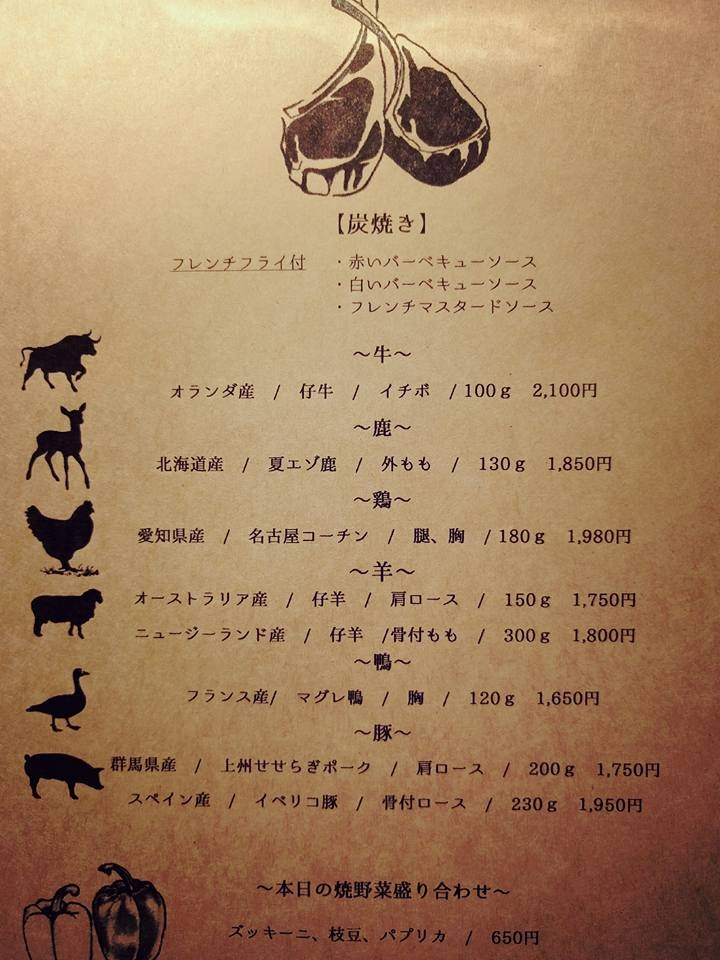 【炭焼き】
フレンチフライ付 ・赤いバーベキューソース
・白いバーベキューソース
・フレンチマスタードソース
～牛～
オランダ産 / 仔牛 / イチボ / 100g 2,100円
～鹿～
北海道産 / 夏エゾ鹿 / 外もも / 130g 1,850円
～鶏～
愛知県産 / 名古屋コーチン / 腿、胸 / 180g 1,980円
～羊～
オーストラリア産 / 仔羊 / 肩ロース / 150g 1,750円
ニュージーランド産 / 仔羊 /骨付もも / 300g 1,800円
～鴨～
フランス産/ マグレ鴨 / 胸 / 120g 1,650円
～豚～
群馬県産 / 上州せせらぎポーク / 肩ロース / 200g 1,750円
スペイン産 / イベリコ豚 / 骨付ロース / 230g 1,950円
～本日の焼野菜盛り合わせ～
ズッキーニ、枝豆、パプリカ / 650円